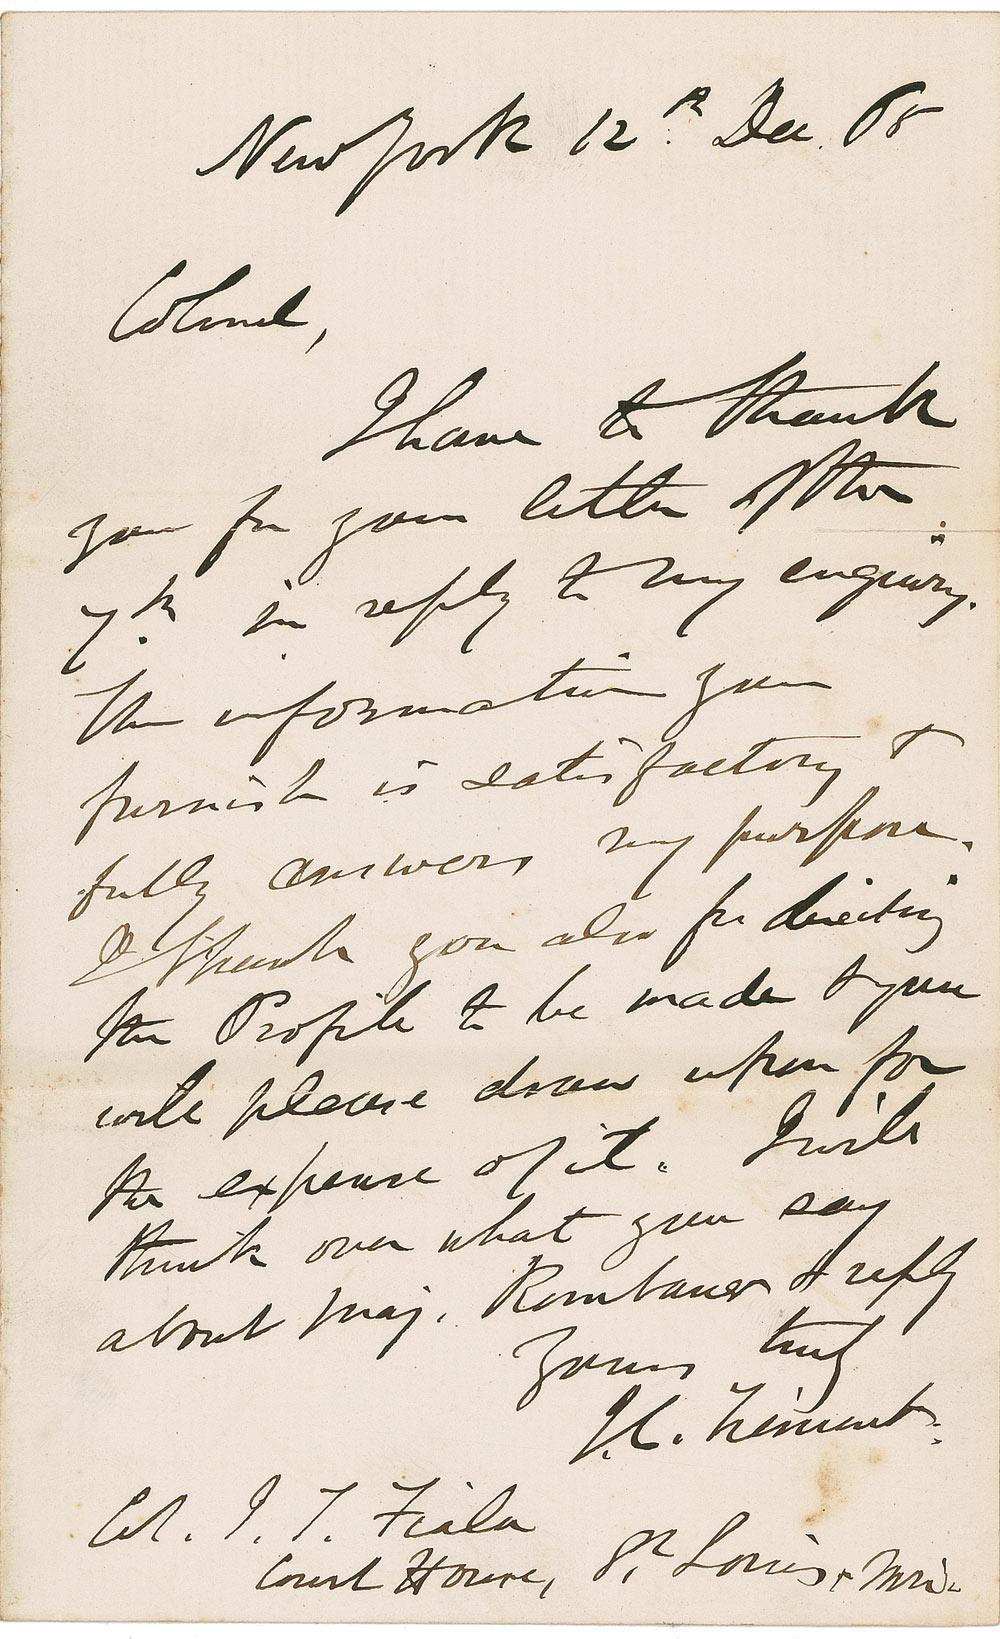 New York 12th Dec. 65
Colonel,
I have to thank
you for your letter of the
7th in reply to my enquiry.
The information you
furnish is satisfactory &
fully answers my purpose.
I thank you also for directing
the Profile to be made & you
will please draw upon for
the expense of it. I will
think over what you say
about Maj. Rombauer & reply
Yours truly
J. C. Frémont.
Col. J. T. Fiala
Court House, St. Louis, Mri.